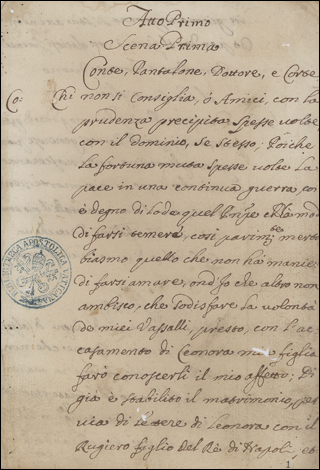 Atto Primo
Scena Prima
Conte, Pantalone, Dottore, e Corte
Co: Chi non si Consiglia, ò Amici, con la
prudenza precipita spesse volte
con il dominio, se stesso; Poiche
la fortuna muta spesse volte la
pace in una continua guerra, con
è degno di lode quel
di farsi temere, così
biasmo quello che non hà manie
di farsi amare, ond'Io che altro non
ambisco, che sodisfare la volontà
de miei Vassalli, presto, con l'ac
casamento di Eleonora mia figlia
farò conoscerli il mio affetto; Di
già è stabilito il matrimonio, per
via di lettere di Leonora con il
Rugiero figlio del Rè di Napoli, et
1
BIBLIOTECA APOSTOLICA VATICANA